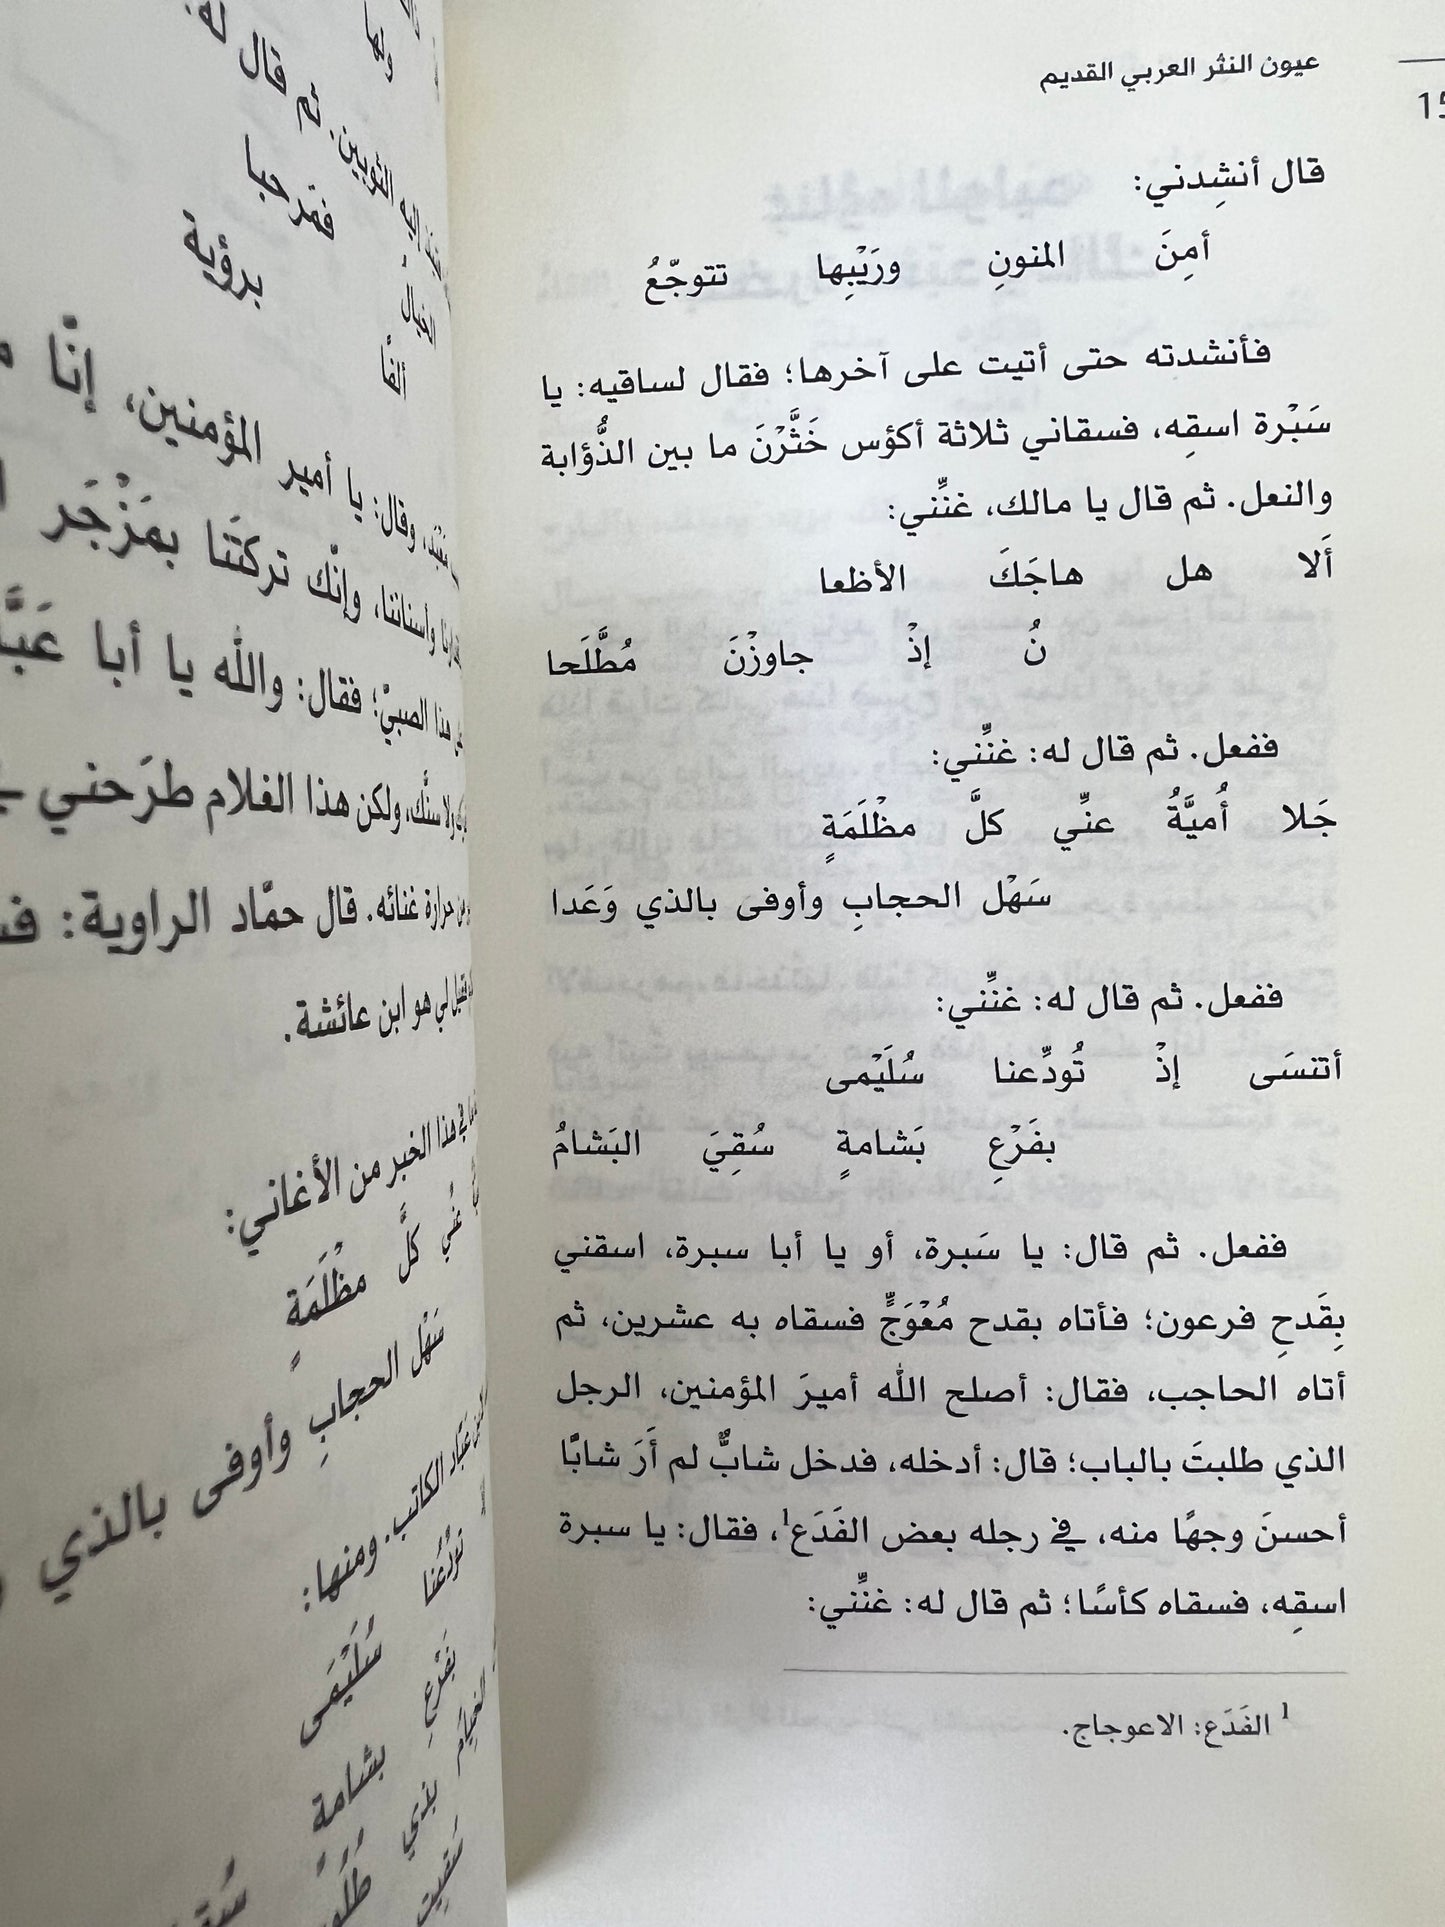 عيون النثر العربي القديم
15
قال أنشِدني:
أمِنَ المنونِ ورَيْبِها تتوجّعُ
فأنشدته حتى أتيت على آخرها؛ فقال لساقيه: يا
سَبْرة اسقِه، فسقاني ثلاثة أكؤس خَثَّرْنَ ما بين الذُّؤابة
والنعل. ثم قال يا مالك، غنِّني:
أَلا هل هاجَكَ الأظعا
نُ إذْ جاوزْنَ مُطَّلَحا
ففعل. ثم قال له: غنِّني:
جَلا أُميَّةُ عنِّي كلَّ مظْلَمَةٍ
سَهْل الحجابِ وأوفى بالذي وَعَدا
ففعل. ثم قال له: غنِّني:
أتنسَى إذْ تُودِّعنا سُلَيْمى
بفَرْعِ بَشامةٍ سُقِيَ البَشامُ
ففعل. ثم قال: يا سَبرة، أو يا أبا سبرة، اسقني
بِقَدحِ فرعون؛ فأتاه بقدح مُعْوَجٍّ فسقاه به عشرين، ثم
أتاه الحاجب، فقال: أصلح الله أميرَ المؤمنين، الرجل
الذي طلبتَ بالباب؛ قال: أدخله، فدخل شابٌّ لم أَرَ شابًّا
أحسنَ وجهًا منه، في رجله بعض الفَدَع1، فقال: يا سبرة
اسقِه، فسقاه كأسًا؛ ثم قال له: غنِّني:
1 الفَدَع: الاعوجاج.
ولها
إليه الثوبين. ثم قال له:
الخيال فمرحبا
ألفًا برؤية
وقال: يا أمير المؤمنين، إنّا
وأسناننا، وإنّك تركتَنا بمَزْجَر
هذا الصبيّ؛ فقال: والله يا أبا
ولا سنَّك، ولكن هذا الغلام طرَحني في
من حرارة غنائه. قال حمّاد الراوية:
فقيل لي هو ابن عائشة.
في هذا الخبر من الأغاني:
عنِّي كلَّ مظْلَمَةٍ
سَهْل الحجابِ وأوفى بالذي
عبّاد الكاتب. ومنها:
تودِّعنا سُلَيْمَى
بفَرْعِ بشامة
الخيام بذي طُلُوحٍ
سُقيتِ